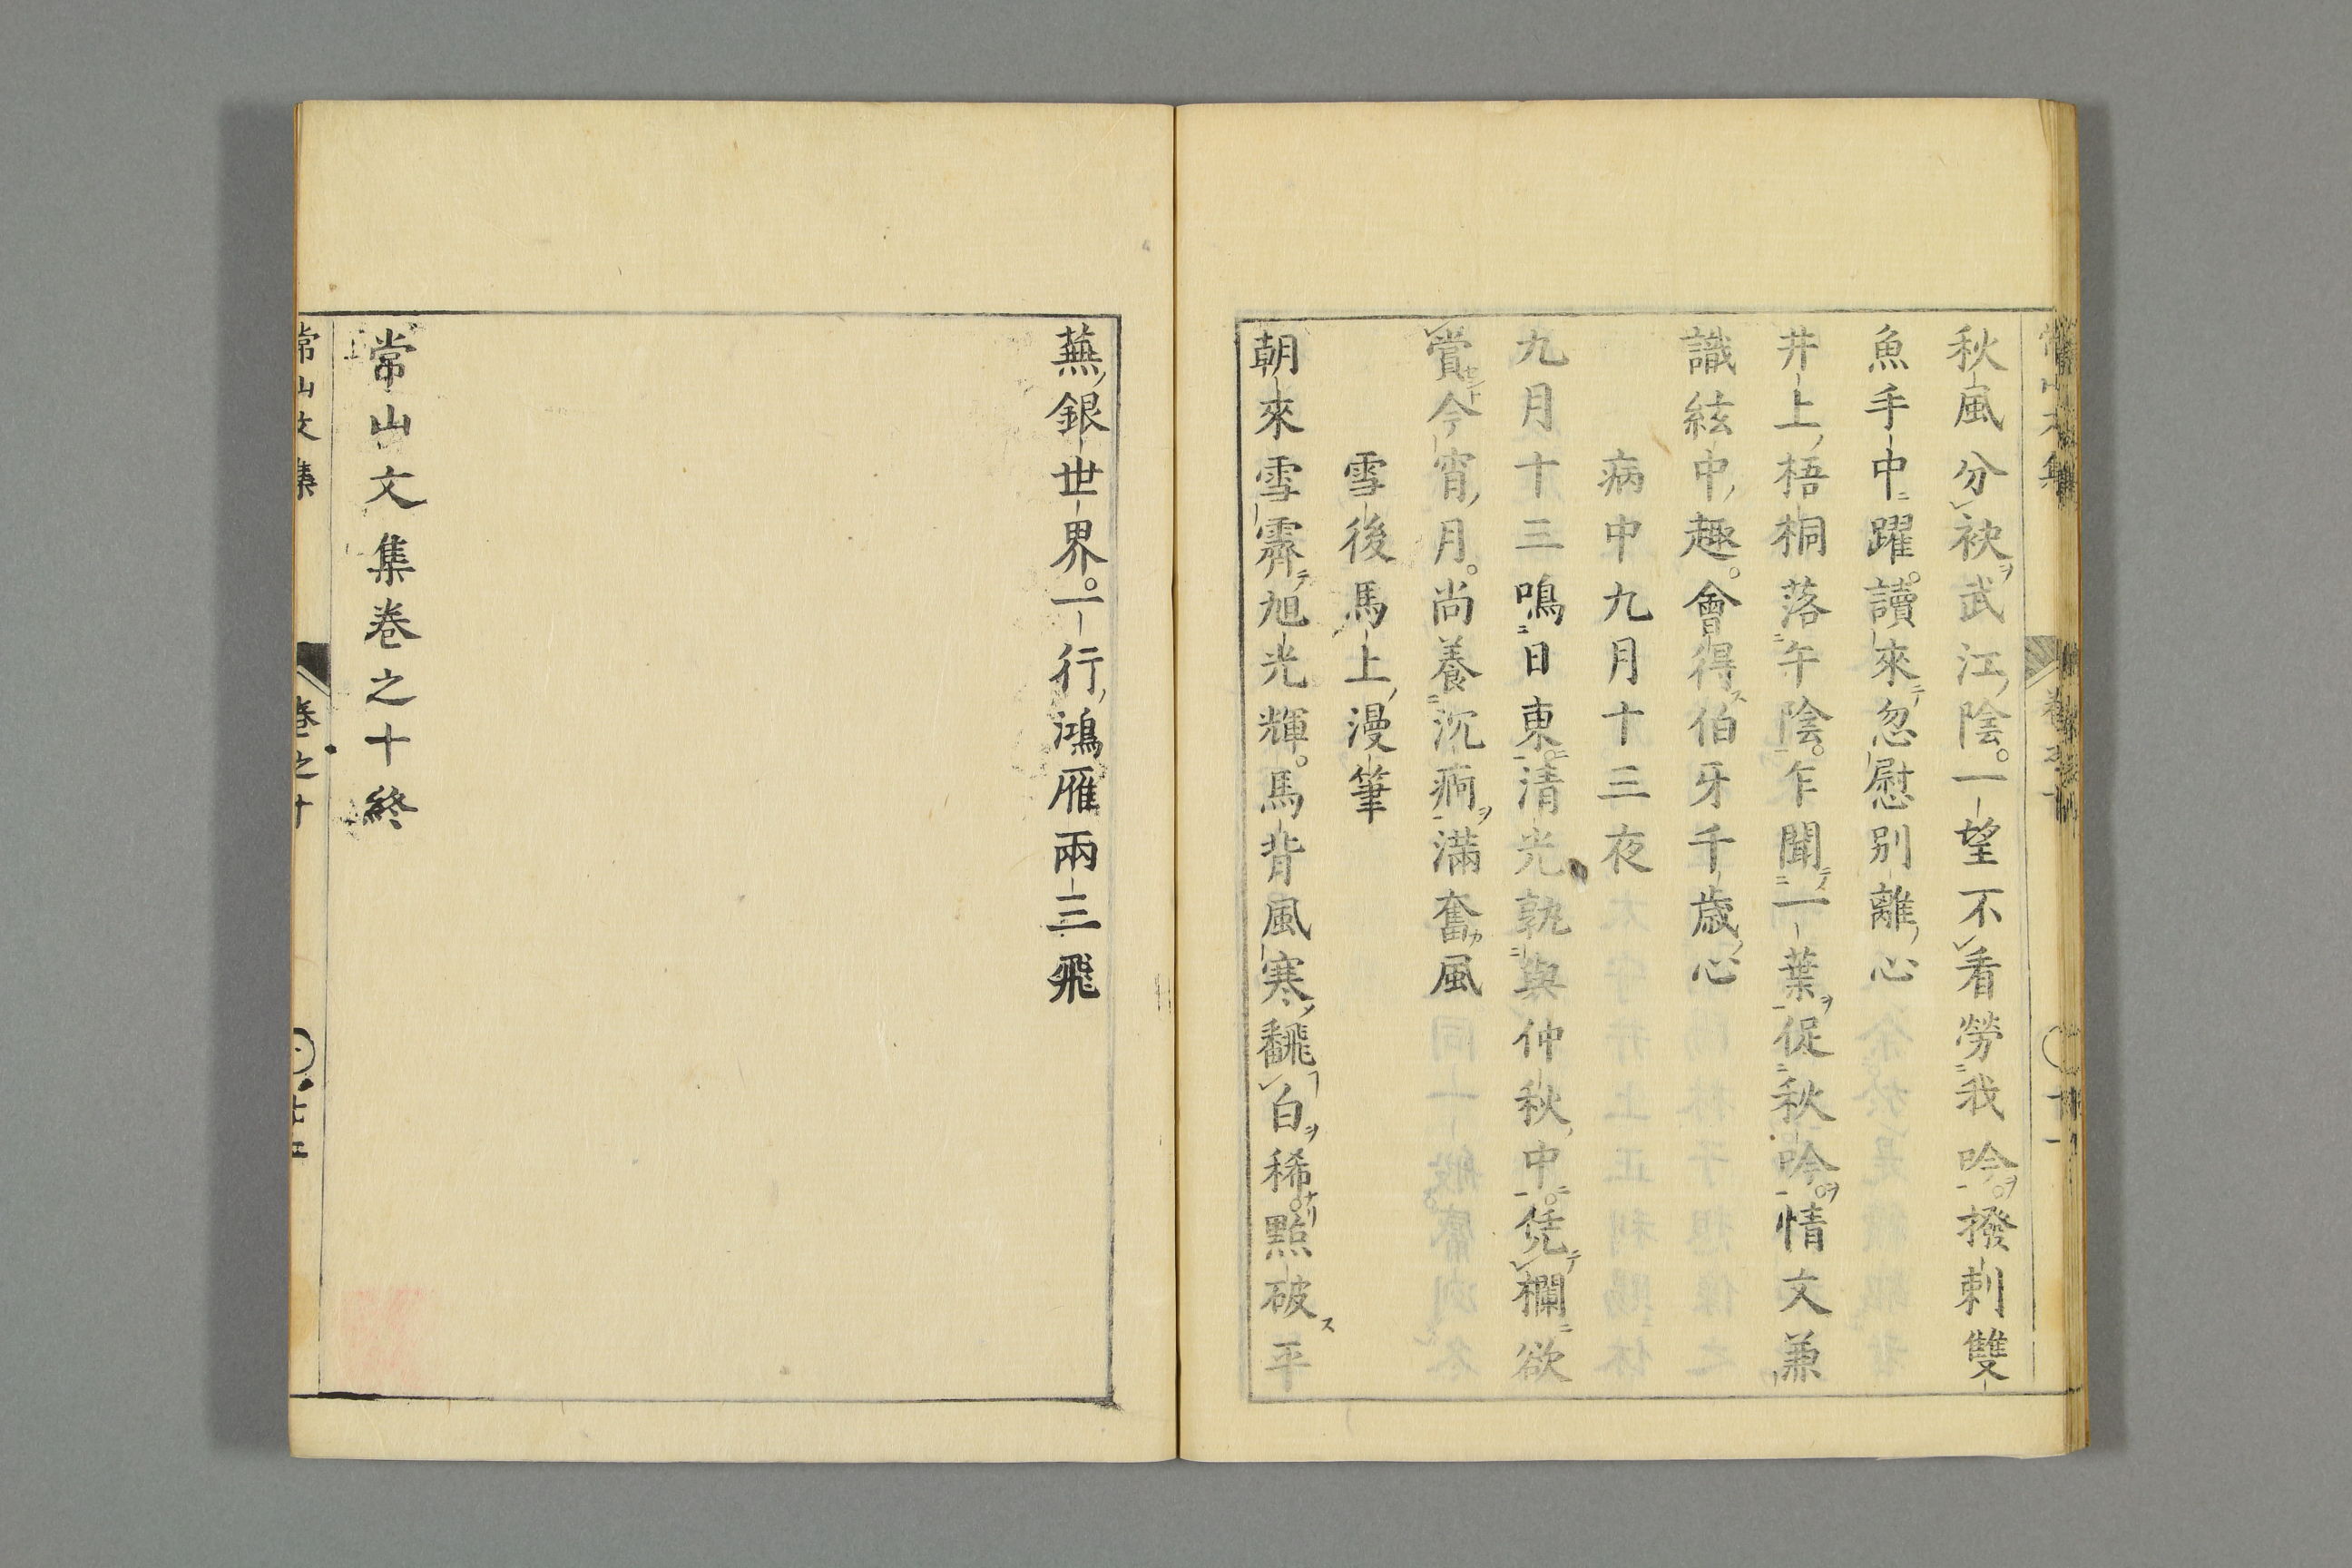 秋風分袂武江陰。一望不看勞我吟。撥刺雙
魚手中躍。讀來忽慰別離心
井上梧桐落午陰。乍聞一葉促秋吟。情文兼
識絃中趣。會得伯牙千歳心
病中九月十三夜
九月十三鳴日東。清光孰與仲秋中。凭欄欲
賞今宵月。尚養沉痾滿奮風
雪後馬上漫筆
朝來雪霽旭光輝。馬背風寒飜白稀。點破平
蕪銀世界。一行鴻雁兩三飛
常山文集卷之十終
常山文集
卷之十